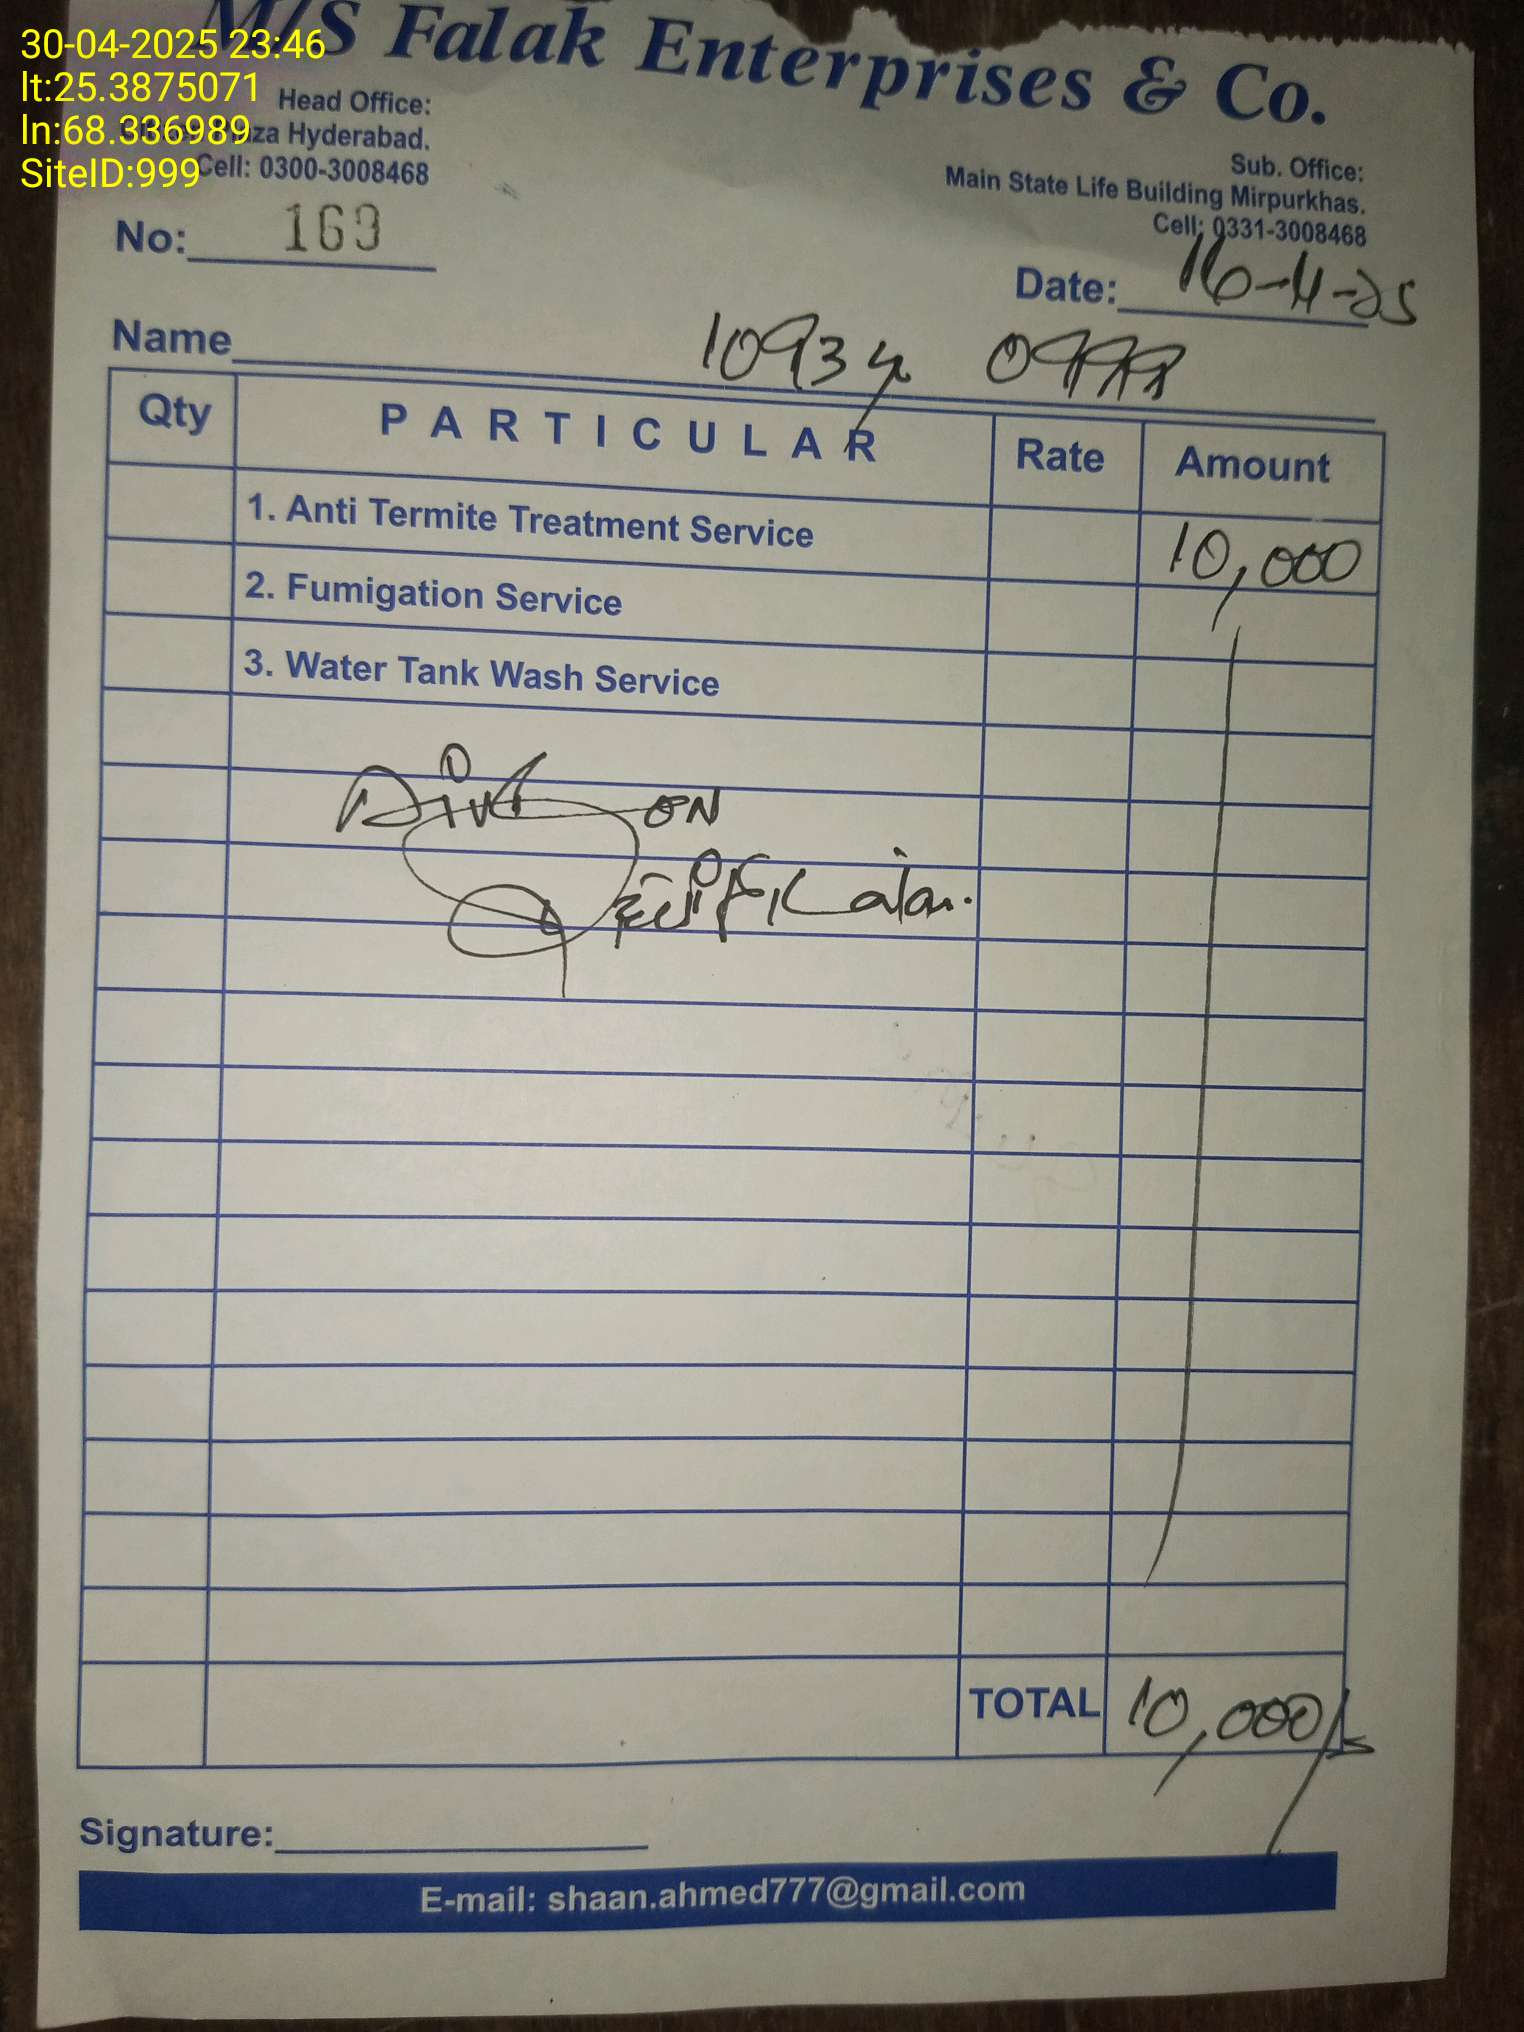 30-04-2025 23:46
lt:25.3875071
ln:68.336989
SiteID:999
M/S Falak Enterprises & Co.
Head Office:
Hyderabad.
Cell: 0300-3008468
Sub. Office:
Main State Life Building Mirpurkhas.
Cell: 0331-3008468
No: 169
Date: 16-4-25
Name 10934 0999
Qty PARTICULAR Rate Amount
1. Anti Termite Treatment Service 10,000
2. Fumigation Service
3. Water Tank Wash Service
ON
TOTAL 10,000/-
Signature:
E-mail: shaan.ahmed777@gmail.com